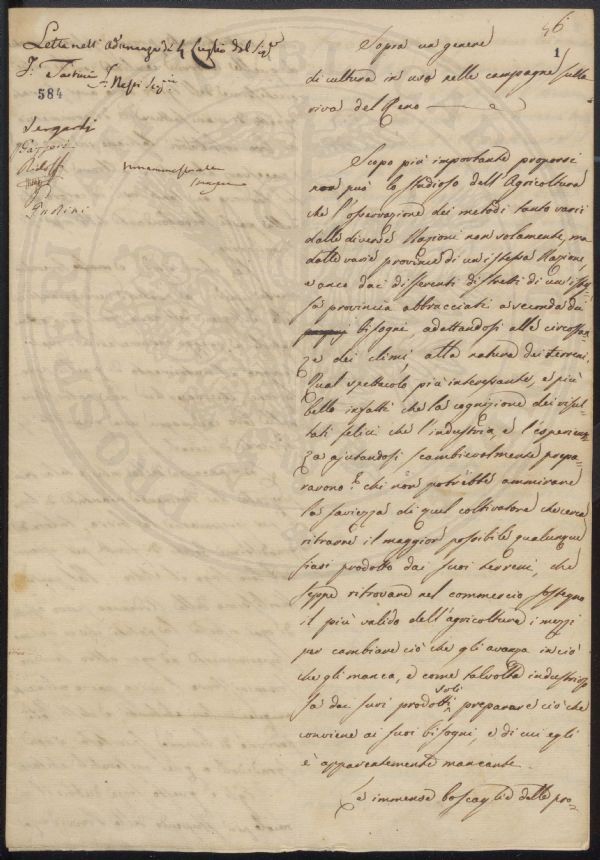 Letta nell' adunanza de 4 Luglio dal Sigr.
F. Tartini
584
Sergardi
Gazzeri
Ridolfi
56
1
Sopra un genere
di cultura in uso nelle campagne sulla
riva del Reno
Scopo più importante proporsi
non può lo studioso dell'Agricoltura
che l'osservazione dei metodi tanto varii
dalle diverse Nazioni non solamente, ma
dalle varie provincie di un'istessa Nazione,
e anco dai differenti distretti di un'istes=
sa provincia abbracciati a seconda dei
bisogni, adattandosi alle circostan=
ze dei climi, alla natura dei terreni.
Qual spettacolo più interessante, e più
bello infatti che la cognizione dei risul=
tati felici che l'industria e l'esperien=
za ajutandosi scambievolmente prepa=
rarono? chi non potrebbe ammirare
la saviezza di quel coltivatore che cerca
ritrarre il maggiore possibile qualunque
siasi prodotto dai suoi terreni, che
seppe ritrovare nel commercio sostegno
il più valido dell'agricoltura i mezzi
per cambiare ciò che gli avanza in ciò
che gli manca, e come talvolta industrioso
sa dai suoi soli prodotti preparare ciò che
conviene ai suoi bisogni, e di cui egli
è apparentemente mancante.
Le immense boscaglie delle pro=